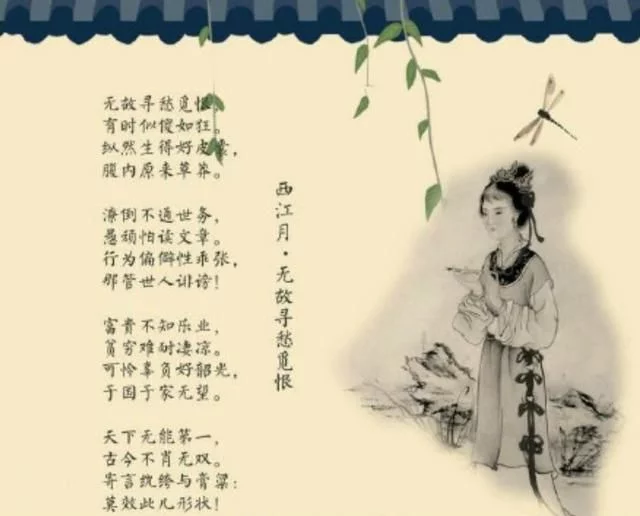 无故寻愁觅恨,
有时似傻如狂。
纵然生得好皮囊,
腹内原来草莽。
潦倒不通世务,
愚顽怕读文章。
行为偏僻性乖张,
那管世人诽谤!
富贵不知乐业,
贫穷难耐凄凉。
可怜辜负好韶光,
于国于家无望。
天下无能第一,
古今不肖无双。
寄言纨绔与膏粱:
莫效此儿形状!
西江月·无故寻愁觅恨